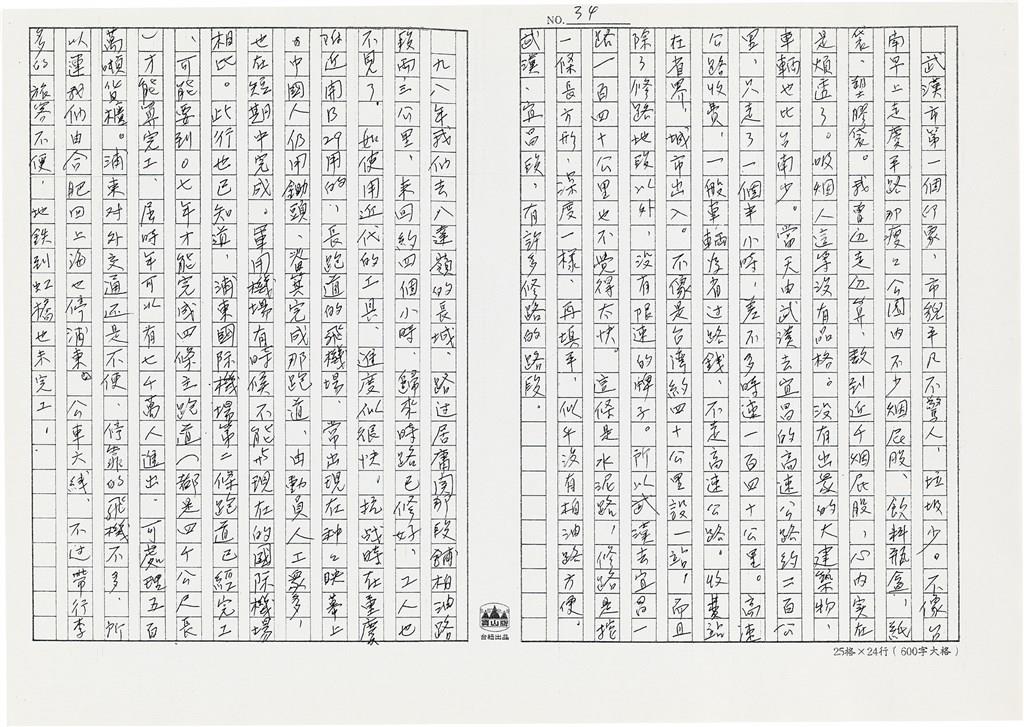 NO. 34
武漢市第一個印象，市貌平凡不驚人，垃圾少。不像台
南早上走慶平路那瘦々公園內不少烟屁股、飲料瓶盒，紙
袋、塑膠袋。我曾边走边算，数到近千烟屁股，心內实在
是煩透了。吸烟人這等沒有品格。沒有出衆的大建築物，
車輛也比台南少。當天由武漢去宜昌的高速公路約二百公
里，只走了一個半小時，差不多時速一百四十公里。高速
公路收費，一般車輛為省过路錢，不走高速公路。收費站
在省界，城市出入。不像是台湾約四十公里設一站，而且
除了修路地段以外，沒有限速的牌子。所以武漢去宜昌一
路一百四十公里也不覺得太快。這條是水泥路，修路是挖
一條長方形，深度一樣，再填平，似乎沒有柏油路方便。
武漢，宜昌段，有許多修路的路段。
九八年我们去八達嶺的長城，路过居庸関那段鋪柏油路
段兩三公里，來回約四個小時，歸來時路已修好，工人也
不見了。如使用近代的工具，進度似很快。抗战時在重慶
附近用B29用的，長跑道的飛機場，常出現在种々映幕上
力中國人仍用鋤頭，畚箕完成那跑道，由動員人工衆多，
也在短期中完成。軍用機場有時候不能与現在的國际機場
相比。此行也已知道，浦東國际機場第二條跑道已經完工
，可能要到０七年才能完成四條主跑道（都是四千公尺長
）才能算完工，屆時年可以有七千萬人進出，可處理五百
萬噸貨櫃。浦東对外交通还是不便，停靠的飛機不多，所
以連我们由合肥回上海也停浦東。公車六线，不过帶行李
多的旅客不便，地鉄到虹橋也未完工，
寶山牌
台紙出品
25格×24行（600字大格）